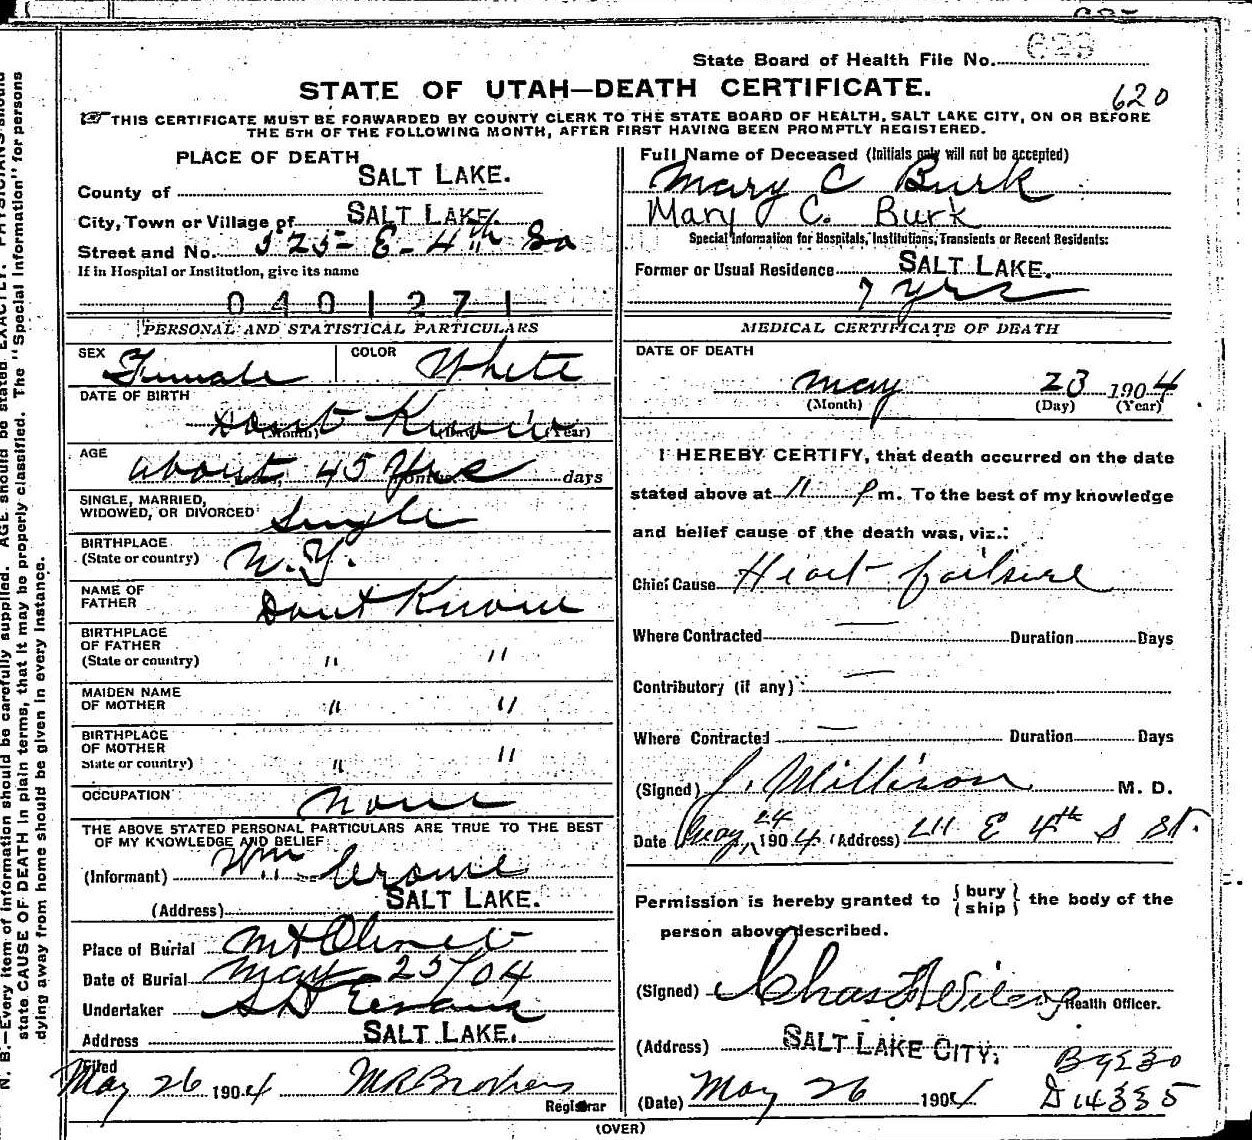 State Board of Health File No. 629
STATE OF UTAH—DEATH CERTIFICATE.
620
THIS CERTIFICATE MUST BE FORWARDED BY COUNTY CLERK TO THE STATE BOARD OF HEALTH, SALT LAKE CITY, ON OR BEFORE
THE 5TH OF THE FOLLOWING MONTH, AFTER FIRST HAVING BEEN PROMPTLY REGISTERED.
PLACE OF DEATH
County of SALT LAKE.
City, Town or Village of SALT LAKE.
Street and No. 325- E- 4th So
If in Hospital or Institution, give its name
0401271
PERSONAL AND STATISTICAL PARTICULARS
SEX Female COLOR White
DATE OF BIRTH
Dont Know
(Month) (Day) (Year)
AGE about 45 Yrs days
SINGLE, MARRIED,
WIDOWED, OR DIVORCED Single
BIRTHPLACE
(State or country) N.Y.
NAME OF
FATHER Dont Know
BIRTHPLACE
OF FATHER
(State or country) " "
MAIDEN NAME
OF MOTHER " "
BIRTHPLACE
OF MOTHER
State or country) " "
OCCUPATION None
THE ABOVE STATED PERSONAL PARTICULARS ARE TRUE TO THE BEST
OF MY KNOWLEDGE AND BELIEF
(Informant) Wm
(Address) SALT LAKE.
Place of Burial Mt Olivet
Date of Burial May 25/04
Undertaker S D Evans
Address SALT LAKE.
Filed
May 26 1904 M R Brothers
Registrar
Full Name of Deceased (Initials only will not be accepted)
Mary C Burk
Mary C. Burk
Special Information for Hospitals, Institutions, Transients or Recent Residents:
Former or Usual Residence SALT LAKE.
7 yrs
MEDICAL CERTIFICATE OF DEATH
DATE OF DEATH
May 23 1904
(Month) (Day) (Year)
I HEREBY CERTIFY, that death occurred on the date
stated above at 11 P m. To the best of my knowledge
and belief cause of the death was, viz.:
Chief Cause Heart failure
Where Contracted — Duration Days
Contributory (if any) —
Where Contracted — Duration Days
(Signed) J. Millison M. D.
Date May 24 1904 (Address) 211 E 4th S St.
Permission is hereby granted to { bury ship } the body of the
person above described.
(Signed) Chas Wilcox Health Officer.
(Address) SALT LAKE CITY.
B9230
(Date) May 26 1904 D 14335
(OVER)
N. B.—Every item of information should be carefully supplied. AGE should be stated EXACTLY. PHYSICIANS should
state CAUSE OF DEATH in plain terms, that it may be properly classified. The "Special Information" for persons
dying away from home should be given in every instance.